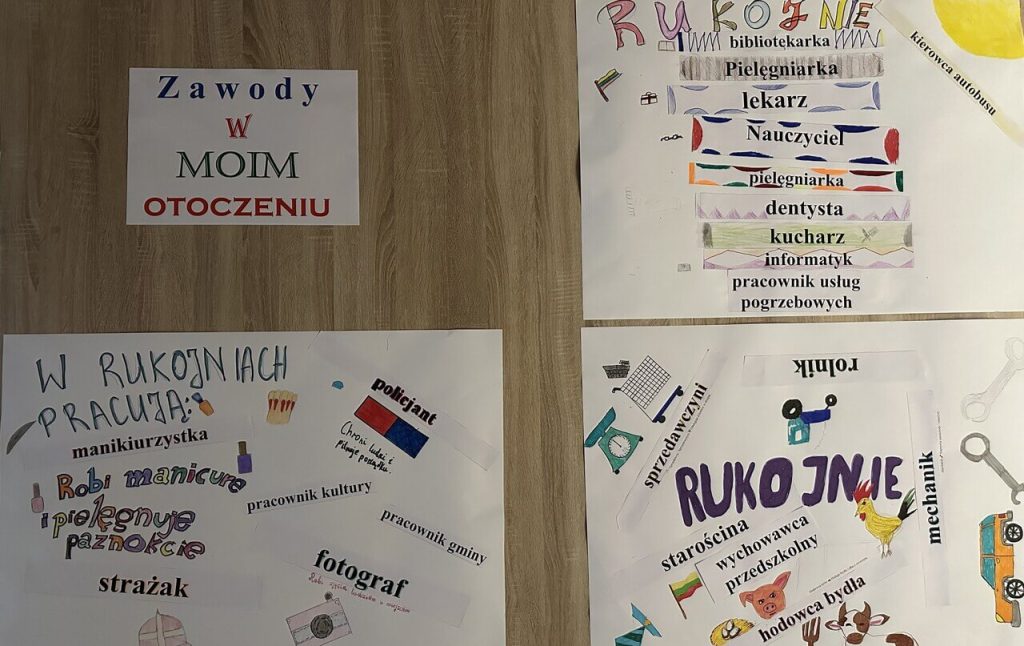 Zawody
w
MOIM
OTOCZENIU
RUKOJNIE
bibliotękarka
Pielęgniarka
lekarz
Nauczyciel
pielęgniarka
dentysta
kucharz
informatyk
pracownik usług
pogrzebowych
kierowca autobusu
W RUKOJNIACH
PRACUJĄ:
manikiurzystka
Robi manicure
i pielęgnuje
paznokcie
strażak
policjant
Chroni ludzi i
pilnuje porządku.
pracownik kultury
pracownik gminy
fotograf
Robi
rolnik
sprzedawczyni
RUKOJNIE
mechanik
starościna
wychowawca
przedszkolny
hodowca bydła